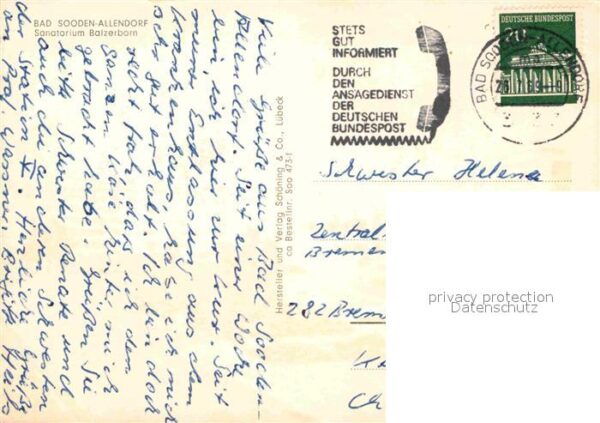 BAD SOODEN-ALLENDORF
Sanatorium Balzerborn
Viele Grüße aus Bad Sooden-
Allendorf. Seit einer Woche
bin ich hier zur Kur. Seit
meiner Entlassung aus dem
Krankenhaus habe ich mich
sehr gut erholt. Ich bin doch
recht froh, daß ich den
ganzen Winter mich
gebracht habe. Grüßen Sie
bitte Schwester Renate und
auch die andern Schwestern
der Station V. Herzliche Grüße
an Prof. Wassner. Brigitte
Hersteller und Verlag Schöning & Co., Lübeck
ca Bestellnr. Soo 475 f
STETS
GUT
INFORMIERT
DURCH
DEN
ANSAGEDIENST
DER
DEUTSCHEN
BUNDESPOST
DEUTSCHE BUNDESPOST
20
BAD SOODEN-ALLENDORF
Schwester Helena
Zentral
Bremen
282 Bremen
privacy protection
Datenschutz